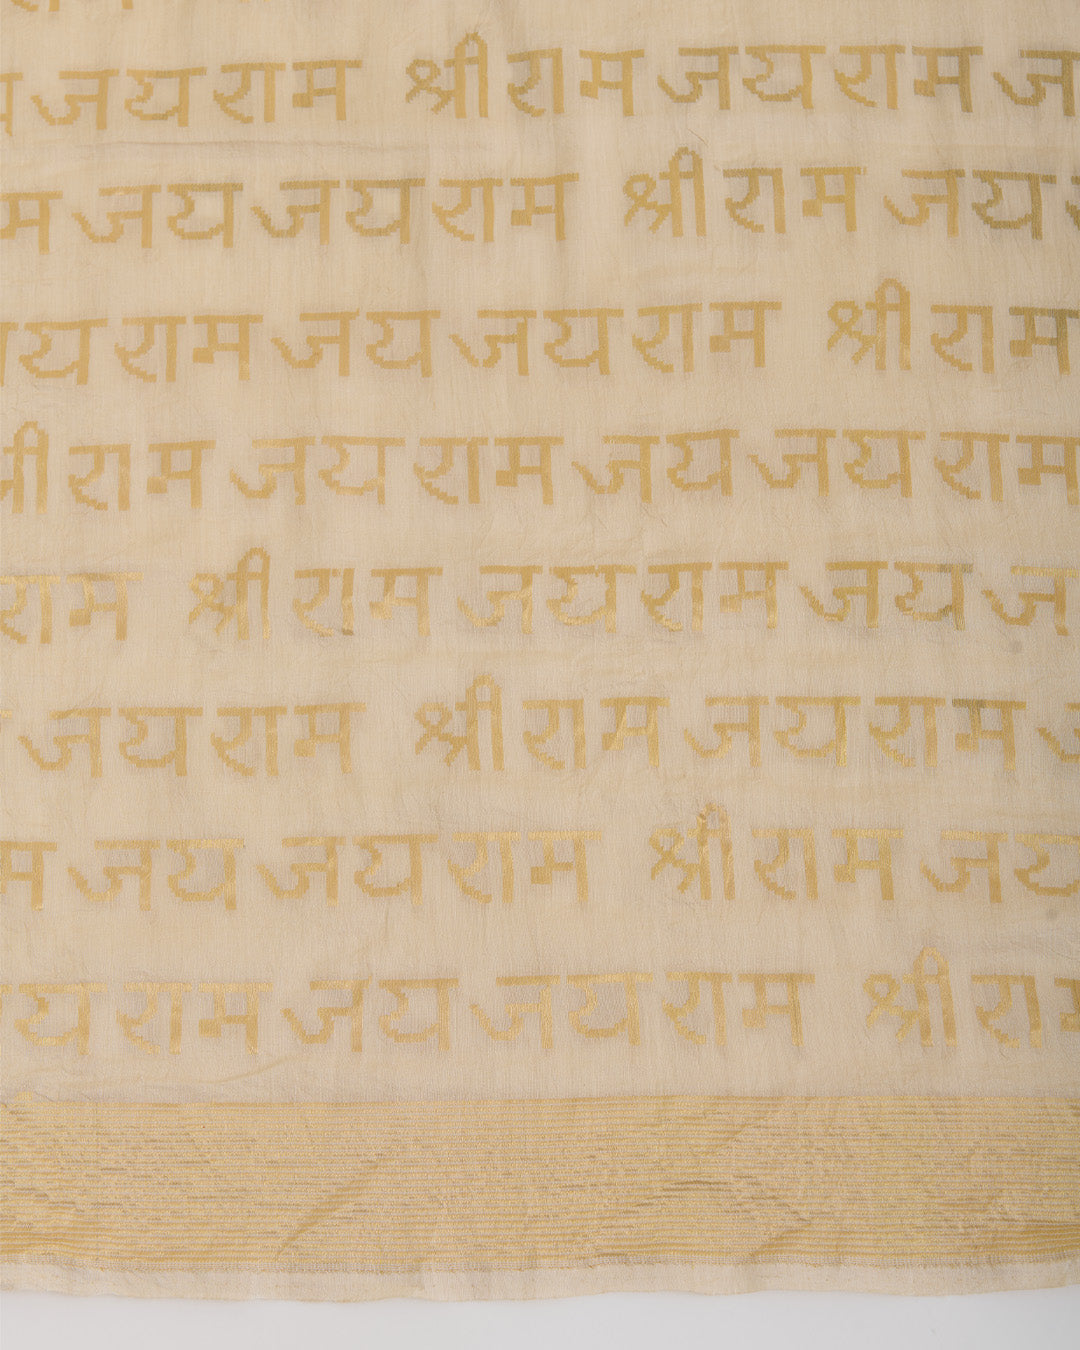 जय राम श्री राम जय राम
जय जय राम श्री राम जय
जय राम जय जय राम श्री राम
श्री राम जय राम जय जय राम
राम श्री राम जय राम जय
जय राम श्री राम जय राम
जय जय राम श्री राम जय
जय राम जय जय राम श्री राम